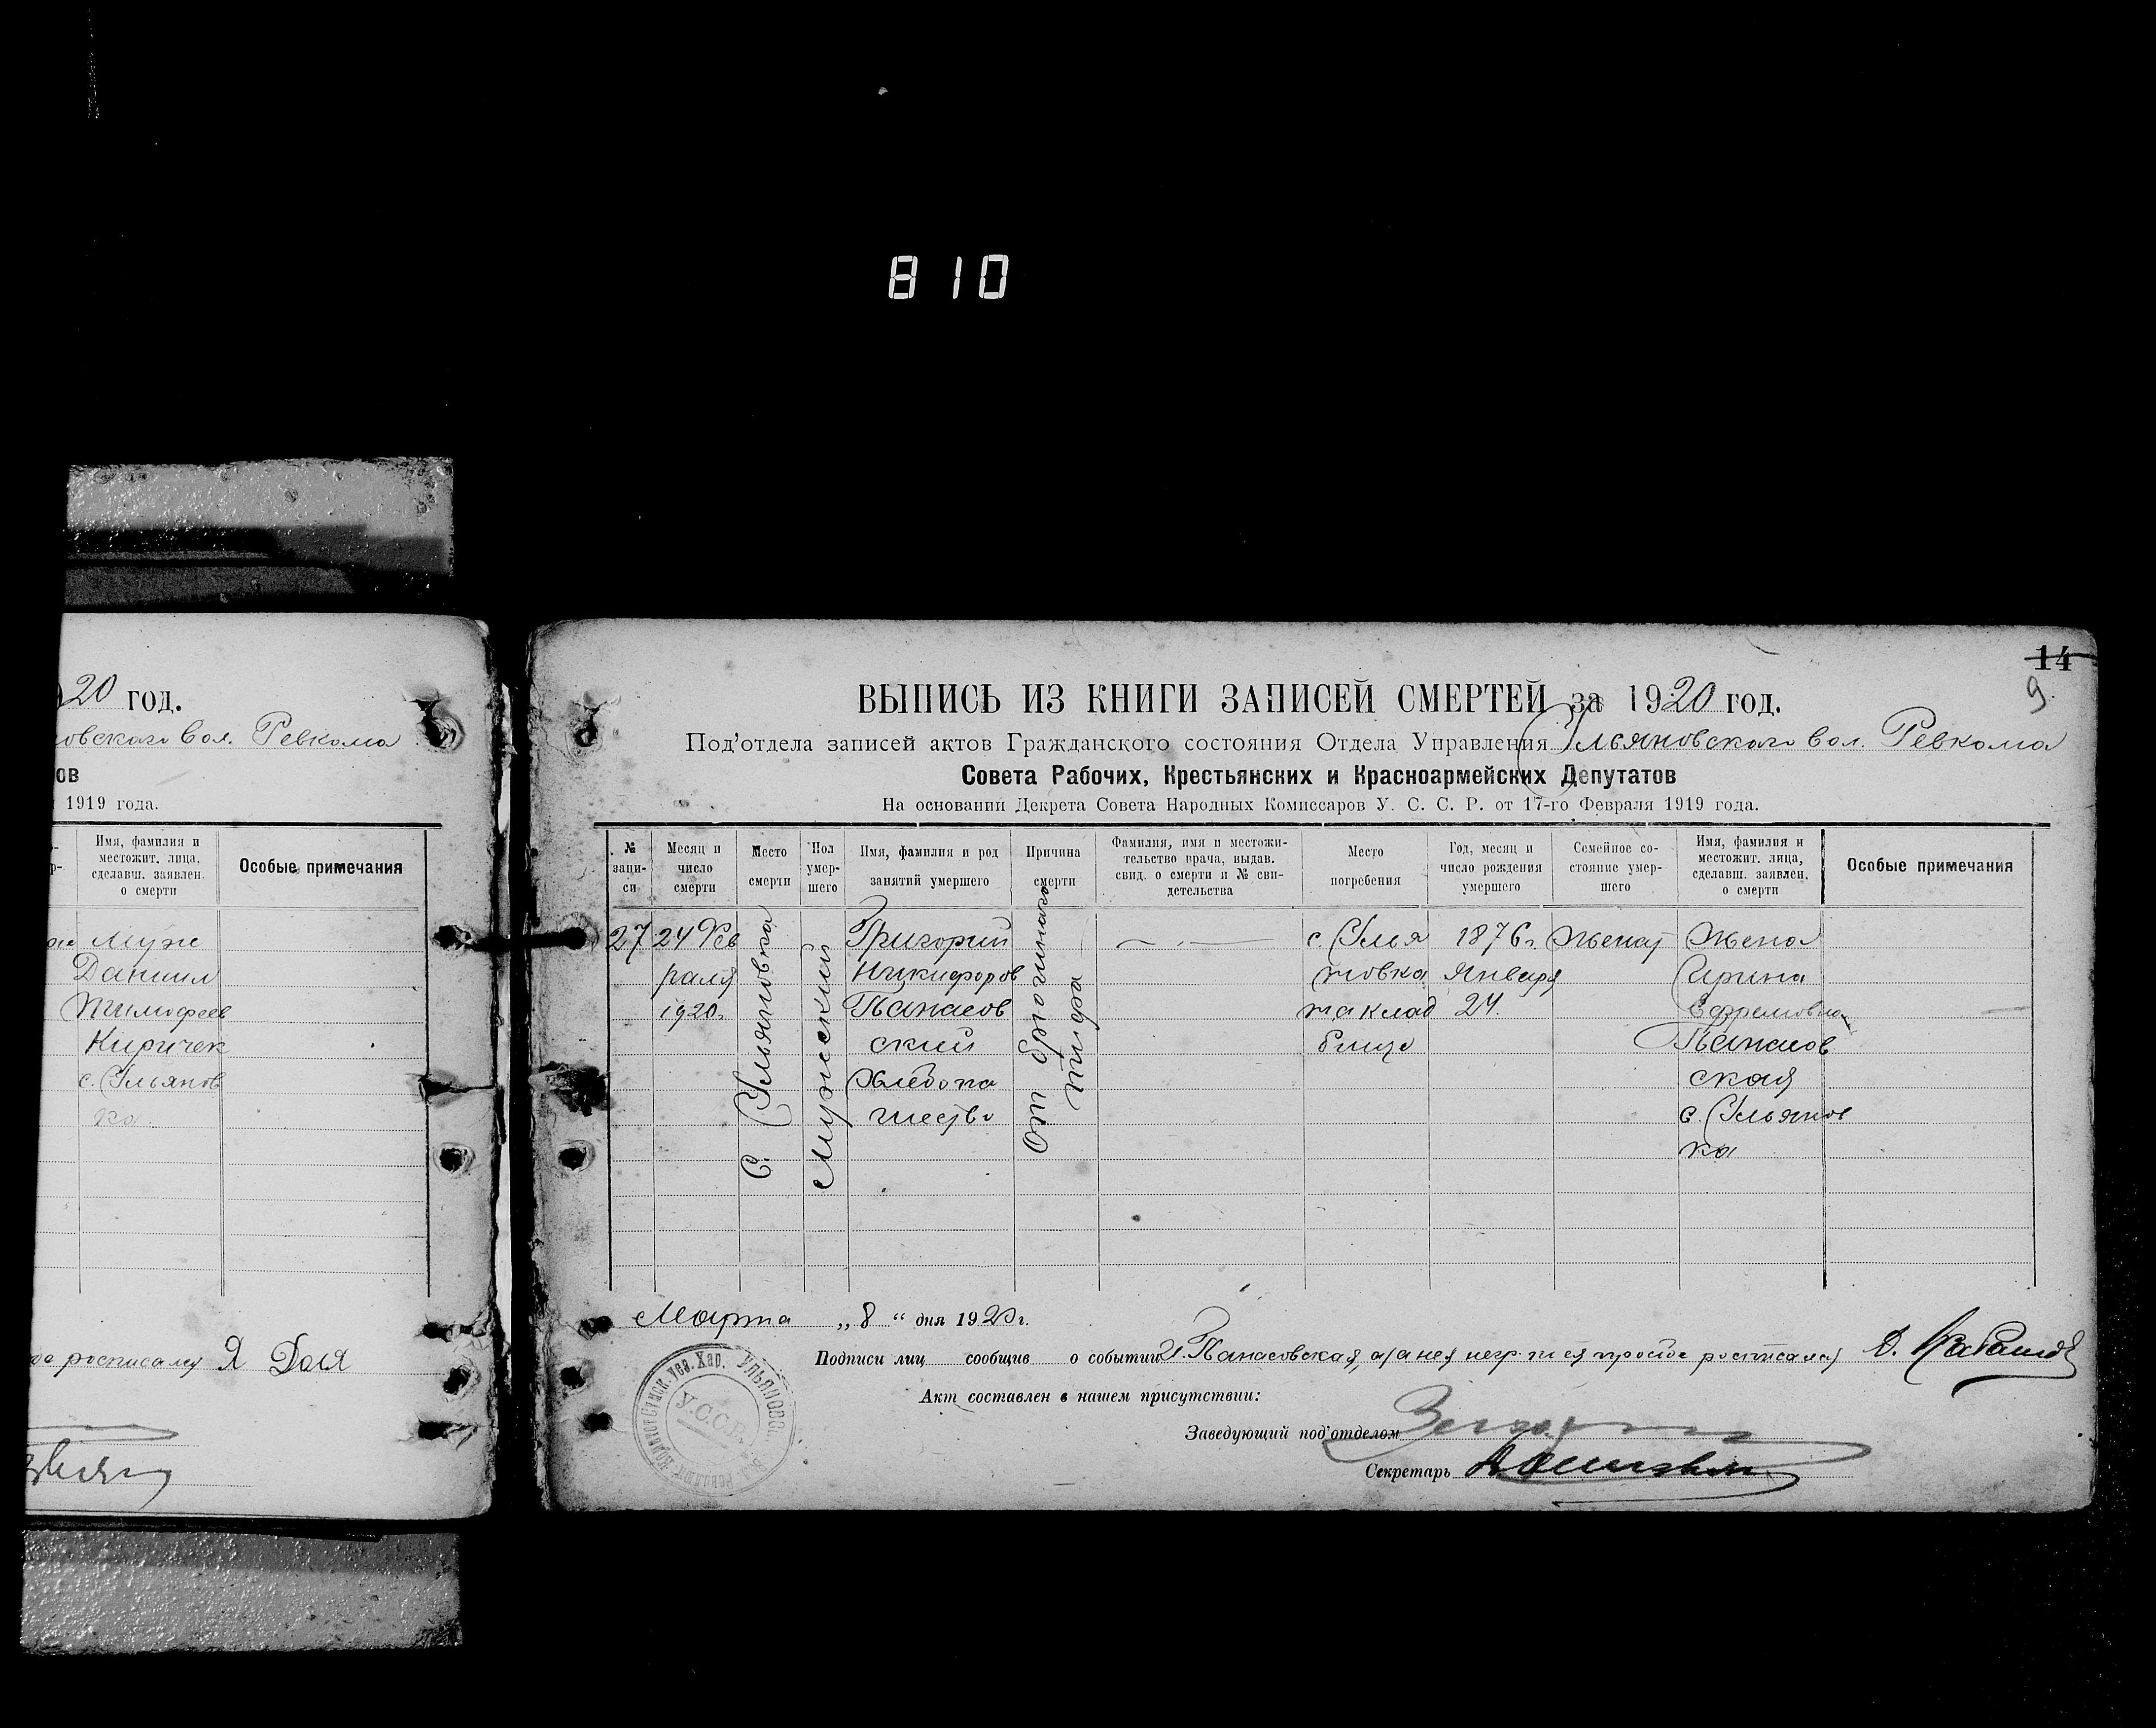 810
20 год.
овского вол. Ревкома
ов
1919 года.
Имя, фамилия и
местожит. лица,
сделавш. заявлен.
о смерти
Особые примечания
Муж
Даниил
Тимофеев
Киричек
с. Ульянов
ка
росписался Я Дья
14
9.
ВЫПИСЬ ИЗ КНИГИ ЗАПИСЕЙ СМЕРТЕЙ за 1920 год.
Под'отдела записей актов Гражданского состояния Отдела Управления Ульяновского вол. Ревкома
Совета Рабочих, Крестьянских и Красноармейских Депутатов
На основании Декрета Совета Народных Комиссаров У. С. С. Р. от 17-го Февраля 1919 года.
№ запи- си
Месяц и число смерти
Место смерти
Пол умер- шего
Имя, фамилия и род занятий умершего
Причина смерти
Фамилия, имя и местожи- тельство врача, выдав. свид. о смерти и № сви- детельства
Место погребения
Год, месяц и число рождения умершего
Семейное со- стояние умер- шего
Имя, фамилия и местожит. лица, сделавш. заявлен. о смерти
Особые примечания
27
24 Фев
раля
1920г
С. Ульяновка
Мужеский
Григорий
Никифоров
Панасов
ский
Хлебопа
шество
От брюшного
тифа
с. Улья
новка
на клад
бище
1876г
Января
24.
Женат
Жена
Ирина
Ефремовна
Панасов
ская
с. Ульянов
ка
Марта „ 8 “ дня 1920 г.
Подписи лиц сообщив о событии И. Панасовская, а за нея негр. по ея просьбе росписался
Акт составлен в нашем присутствии:
Заведующий под'отделом
Секретарь
У.С.С.Р.